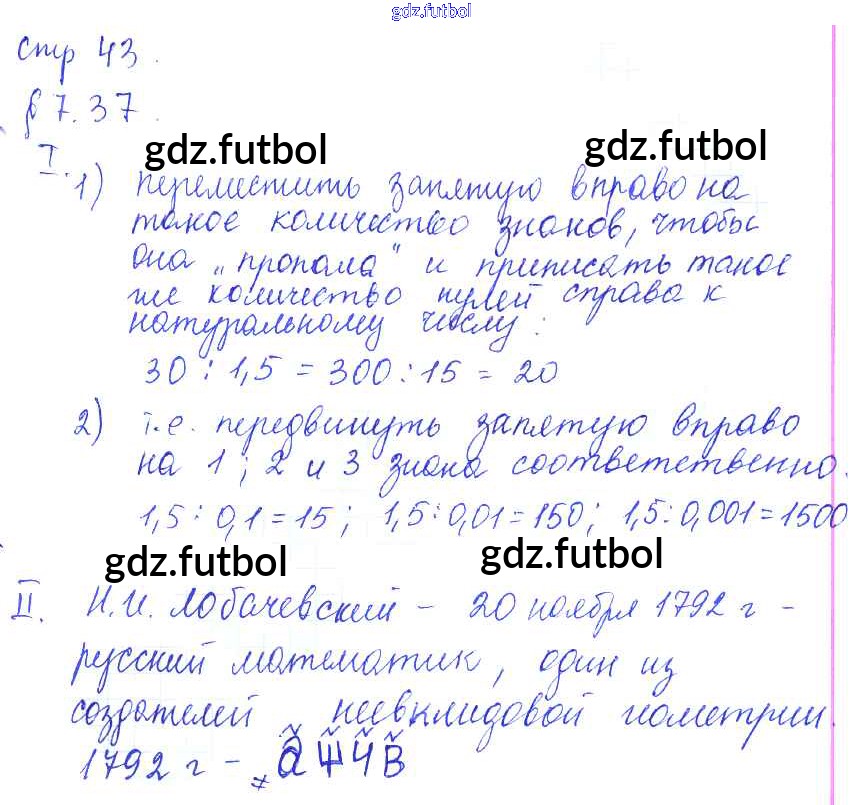 gdz.futbol
стр 43.
§ 7.37.
gdz.futbol gdz.futbol
I. 1) переместить запятую вправо на
такое количество знаков, чтобы
она „пропала“ и приписать такое
же количество нулей справа к
натуральному числу:
30 : 1,5 = 300 : 15 = 20
2) т.е. передвинуть запятую вправо
на 1; 2 и 3 знака соответственно.
1,5 : 0,1 = 15; 1,5 : 0,01 = 150; 1,5 : 0,001 = 1500
gdz.futbol gdz.futbol
II. Н.И. Лобачевский – 20 ноября 1792 г –
русский математик, один из
создателей неевклидовой геометрии.
1792 г –